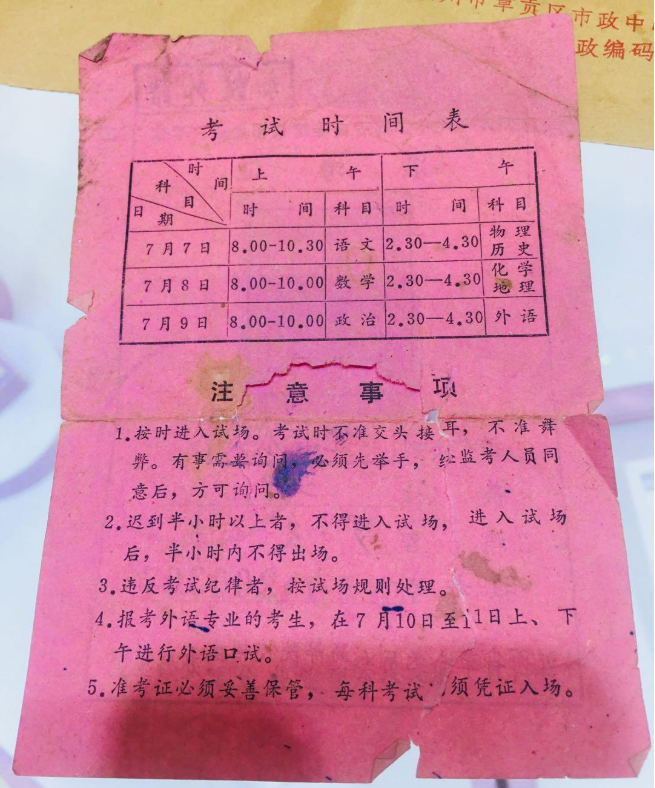 州市章贡区市政中
政编码
考试时间表
时间 科目 日期 上午 下午
时间 科目 时间 科目
7月7日 8.00-10.30 语文 2.30—4.30 物理 历史
7月8日 8.00-10.00 数学 2.30—4.30 化学 地理
7月9日 8.00-10.00 政治 2.30—4.30 外语
注意事项
1.按时进入试场。考试时不准交头接耳，不准舞
弊。有事需要询问，必须先举手，经监考人员同
意后，方可询问。
2.迟到半小时以上者，不得进入试场，进入试场
后，半小时内不得出场。
3.违反考试纪律者，按试场规则处理。
4.报考外语专业的考生，在7月10日至11日上、下
午进行外语口试。
5.准考证必须妥善保管，每科考试 须凭证入场。